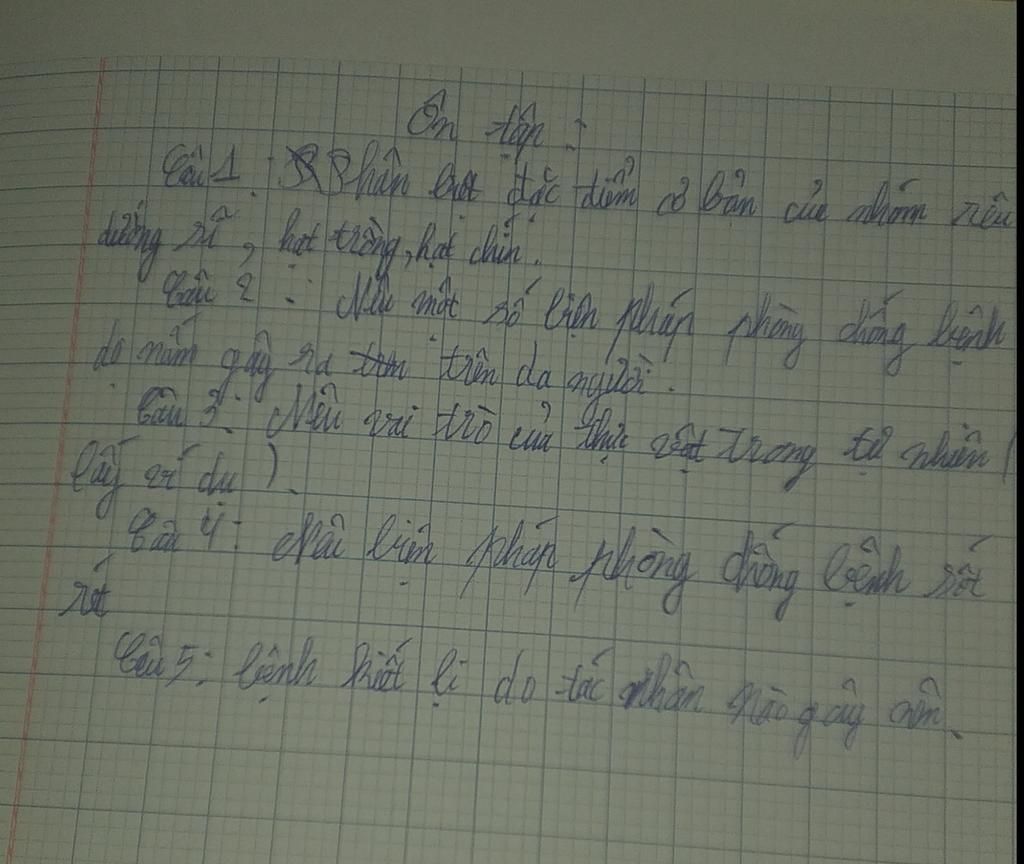 Ôn tập :
Câu 1 : Phân biệt đặc điểm cơ bản của nhóm rêu
dương xỉ, hạt trần, hạt kín.
Câu 2 : Nêu một số biện pháp phòng chống bệnh
do nấm gây ra trên da người.
Câu 3 : Nêu vai trò của thực vật trong tự nhiên (
lấy ví dụ ).
Câu 4 : Nêu biện pháp phòng chống bệnh sốt
rét
Câu 5 : bệnh kiết lị do tác nhân nào gây nên.